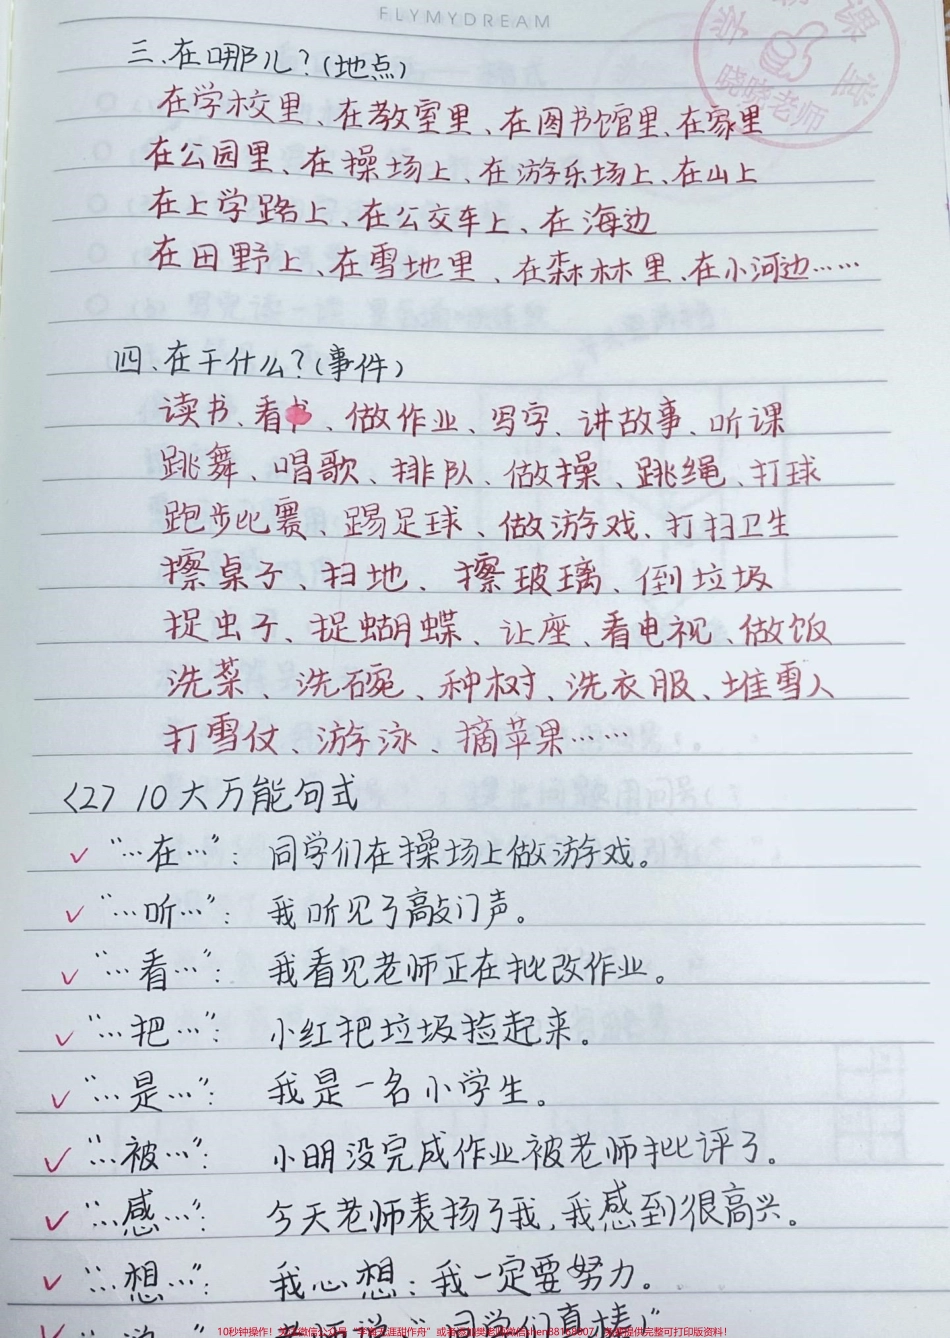 FLYMYDREAM
三、在哪儿？(地点)
在学校里、在教室里、在图书馆里、在家里
在公园里、在操场上、在游乐场上、在山上
在上学路上、在公交车上、在海边
在田野上、在雪地里、在森林里、在小河边……
四、在干什么？(事件)
读书、看书、做作业、写字、讲故事、听课
跳舞、唱歌、排队、做操、跳绳、打球
跑步比赛、踢足球、做游戏、打扫卫生
擦桌子、扫地、擦玻璃、倒垃圾
捉虫子、捉蝴蝶、让座、看电视、做饭
洗菜、洗碗、种树、洗衣服、堆雪人
打雪仗、游泳、摘苹果……
<2> 10大万能句式
✓ “…在…”: 同学们在操场上做游戏。
✓ “…听…”: 我听见了敲门声。
✓ “…看…”: 我看见老师正在批改作业。
✓ “…把…”: 小红把垃圾捡起来。
✓ “…是…”: 我是一名小学生。
✓ “…被…”: 小明没完成作业被老师批评了。
✓ “…感…”: 今天老师表扬了我,我感到很高兴。
✓ “…想…”: 我心想:我一定要努力。
晓晓老师